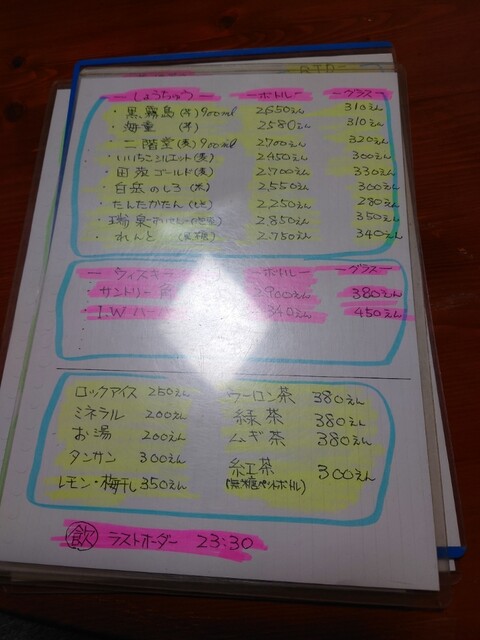 ー しょうちゅう ー ーボトルー ーグラスー
・黒霧島(芋)900ml 2,650えん 310えん
・海童 (芋) 2580えん 310えん
・二階堂(麦)900ml 2,700えん 320えん
・いいちこシルエット(麦) 2450えん 300えん
・田苑ゴールド(麦) 2,700えん 330えん
・白岳のしろ(米) 2,550えん 300えん
・たんたかたん(しそ) 2,250えん 280えん
・瑞泉 2,850えん 350えん
・れんと (黒糖) 2,750えん 340えん
ー ウィスキー ーボトルー ーグラスー
・サントリー角 2,900えん 380えん
・I.W ハー 340えん 450えん
ロックアイス 250えん ウーロン茶 380えん
ミネラル 200えん 緑茶 380えん
お湯 200えん ムギ茶 380えん
タンサン 300えん 紅茶 300えん
(無糖ペットボトル)
レモン・梅干し 350えん
飲 ラストオーダー 23:30